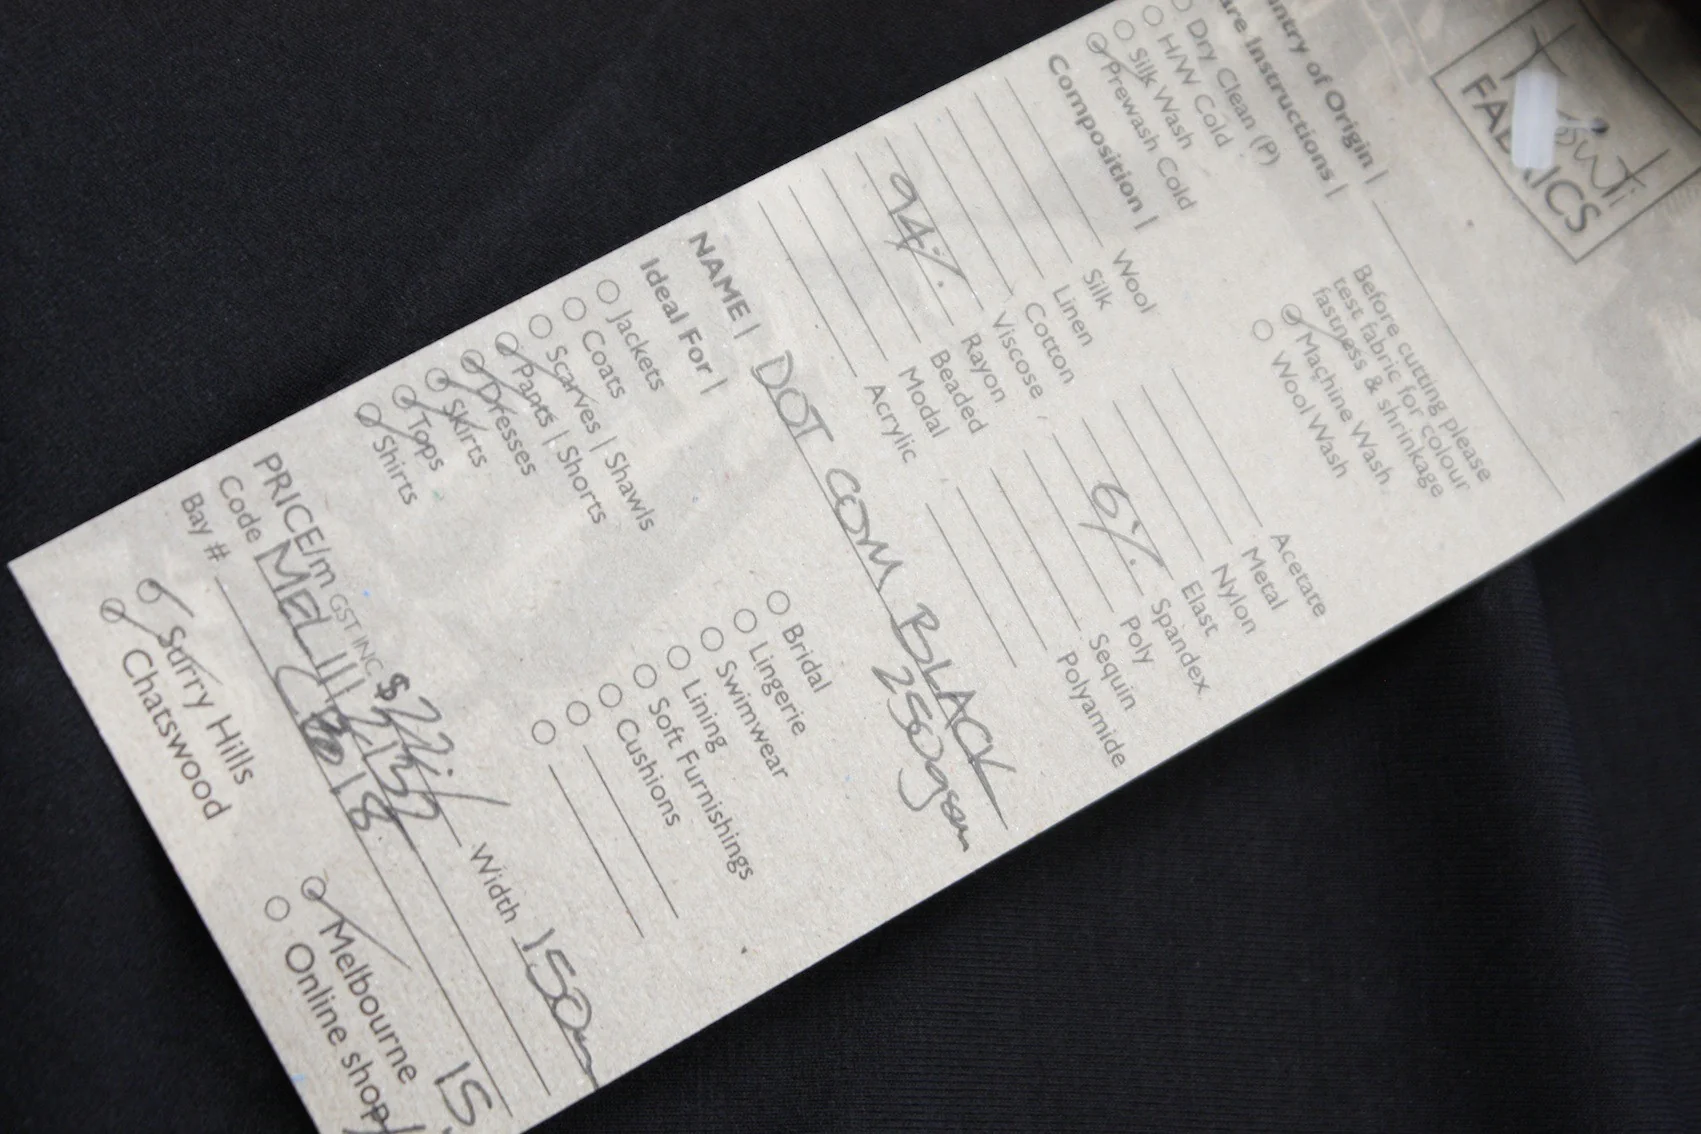 FABRICS
ntry of Origin |
are Instructions |
Dry Clean (P)
H/W Cold
Silk Wash
Prewash Cold
Before cutting please
test fabric for colour
fastness & shrinkage
Machine Wash
Wool Wash
Composition |
Wool
Silk
Linen
Cotton
Viscose
94% Rayon
Beaded
Modal
Acrylic
Acetate
Metal
Nylon
Elast
6% Spandex
Poly
Sequin
Polyamide
NAME | DOT COM BLACK
250gsm
Ideal For |
Jackets
Coats
Scarves | Shawls
Pants | Shorts
Dresses
Skirts
Tops
Shirts
Bridal
Lingerie
Swimwear
Lining
Soft Furnishings
Cushions
PRICE/m GST INC
Width 150
Code
Bay #
Surry Hills
Chatswood
Melbourne
Online shop